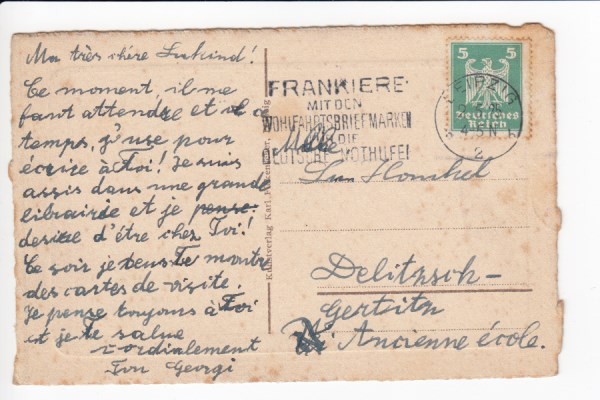 Ma très chére Lukind!
Ce moment, il me
faut attendre et
temps, j'use pour
écrire à Toi! Je suis
assis dans une grande
librairie et je pense
desire d'être chez Toi!
Ce soir je Te montre
des cartes de visite.
Je pense toujours à Toi
et je Te salue
cordialement
Ton Georgi
Kunstverlag Karl
FRANKIERE
MIT DEN
WOHLFAHRTSBRIEFMARKEN
DIE
DEUTSCHE NOTHILFE!
LEIPZIG
2
5 5
Deutsches
Reich
Mlle
Delitzsch-
Gertitz
Ancienne école.